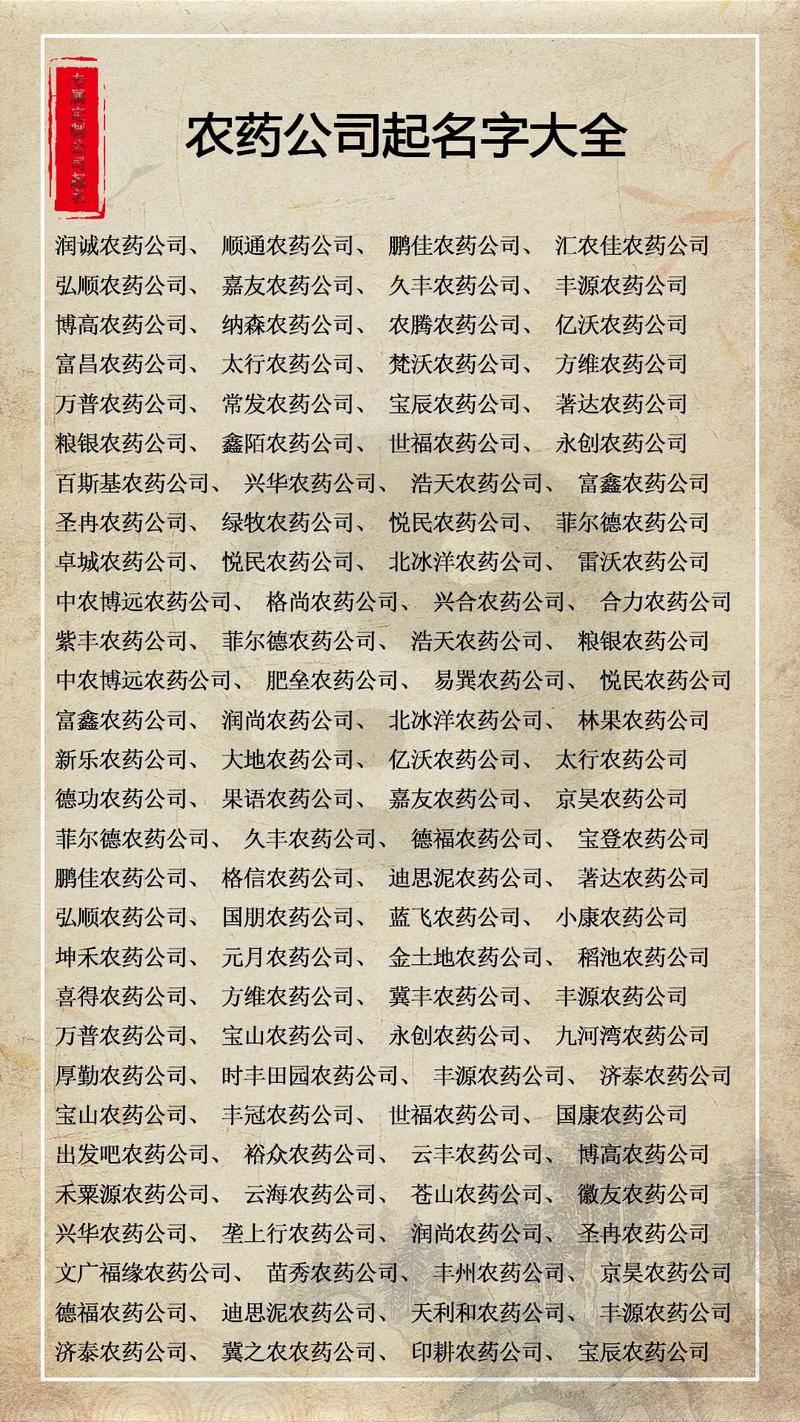 农药公司起名字大全
润诚农药公司、 顺通农药公司、 鹏佳农药公司、 汇农佳农药公司
弘顺农药公司、 嘉友农药公司、 久丰农药公司、 丰源农药公司
博高农药公司、 纳森农药公司、 农腾农药公司、 亿沃农药公司
富昌农药公司、 太行农药公司、 梵沃农药公司、 方维农药公司
万普农药公司、 常发农药公司、 宝辰农药公司、 著达农药公司
粮银农药公司、 鑫陌农药公司、 世福农药公司、 永创农药公司
百斯基农药公司、 兴华农药公司、 浩天农药公司、 富鑫农药公司
圣冉农药公司、 绿牧农药公司、 悦民农药公司、 菲尔德农药公司
卓城农药公司、 悦民农药公司、 北冰洋农药公司、 雷沃农药公司
中农博远农药公司、 格尚农药公司、 兴合农药公司、 合力农药公司
紫丰农药公司、 菲尔德农药公司、 浩天农药公司、 粮银农药公司
中农博远农药公司、 肥垒农药公司、 易巽农药公司、 悦民农药公司
富鑫农药公司、 润尚农药公司、 北冰洋农药公司、 林果农药公司
新乐农药公司、 大地农药公司、 亿沃农药公司、 太行农药公司
德功农药公司、 果语农药公司、 嘉友农药公司、 京昊农药公司
菲尔德农药公司、 久丰农药公司、 德福农药公司、 宝登农药公司
鹏佳农药公司、 格信农药公司、 迪思泥农药公司、 著达农药公司
弘顺农药公司、 国朋农药公司、 蓝飞农药公司、 小康农药公司
坤禾农药公司、 元月农药公司、 金土地农药公司、 稻池农药公司
喜得农药公司、 方维农药公司、 冀丰农药公司、 丰源农药公司
万普农药公司、 宝山农药公司、 永创农药公司、 九河湾农药公司
厚勤农药公司、 时丰田园农药公司、 丰源农药公司、 济泰农药公司
宝山农药公司、 丰冠农药公司、 世福农药公司、 国康农药公司
出发吧农药公司、 裕众农药公司、 云丰农药公司、 博高农药公司
禾粟源农药公司、 云海农药公司、 苍山农药公司、 徽友农药公司
兴华农药公司、 垄上行农药公司、 润尚农药公司、 圣冉农药公司
文广福缘农药公司、 苗秀农药公司、 丰州农药公司、 京昊农药公司
德福农药公司、 迪思泥农药公司、 天利和农药公司、 丰源农药公司
济泰农药公司、 冀之农农药公司、 印耕农药公司、 宝辰农药公司